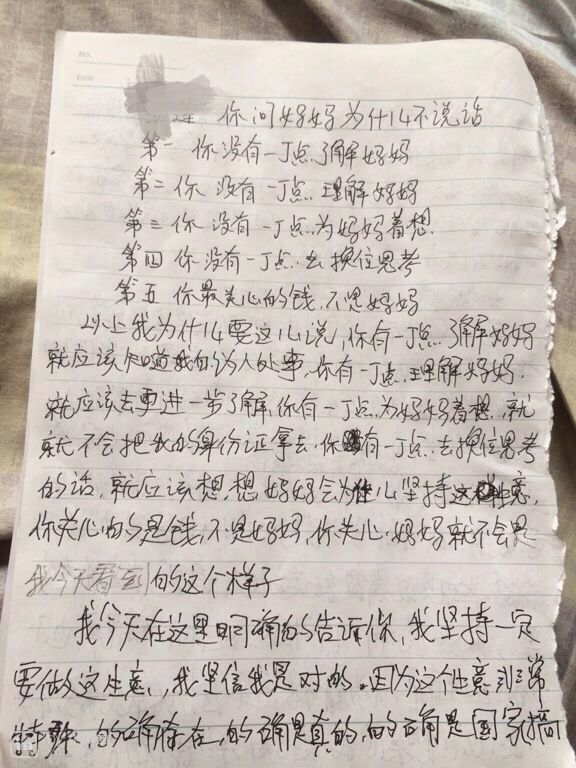 No.
Date
你问妈妈为什么不说话
第一 你没有一丁点了解妈妈
第二 你没有一丁点理解妈妈
第三 你没有一丁点为妈妈着想
第四 你没有一丁点去换位思考
第五 你最关心的钱,不是妈妈
以上我为什么要这么说,你有一丁点了解妈妈
就应该知道我的为人处事,你有一丁点理解妈妈,
就应该去更进一步了解,你有一丁点为妈妈着想,就
就不会把我的身份证拿去,你有一丁点去换位思考
的话,就应该想,想妈妈会为什么坚持这个生意,
你关心的是钱,不是妈妈,你关心妈妈就不会是
我今天看到的这个样子
我今天在这里明确的告诉你,我坚持一定
要做这生意,我坚信我是对的。因为这个生意非常
特殊,的确存在,的确是真的,的确是国家搞